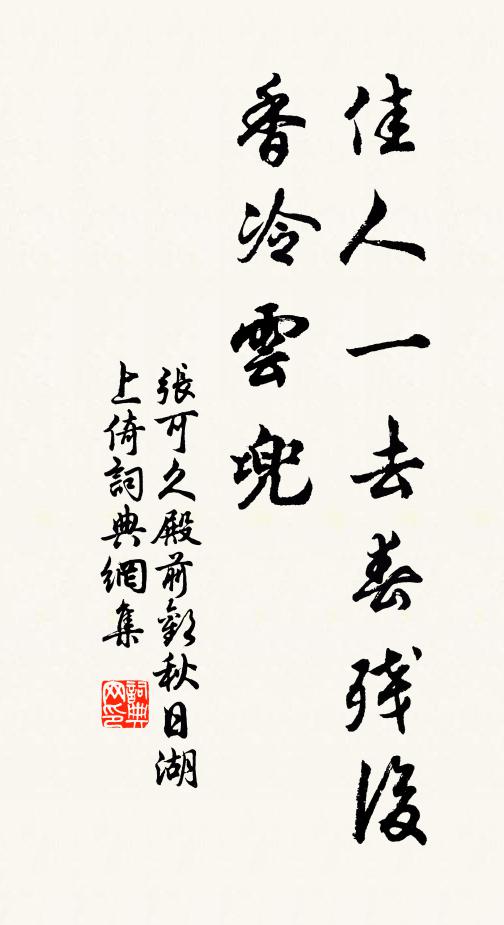 佳人一去春残後
香冷雲兜
張可久殿前歡秋日湖
上倚詞典網集
詞典
网印